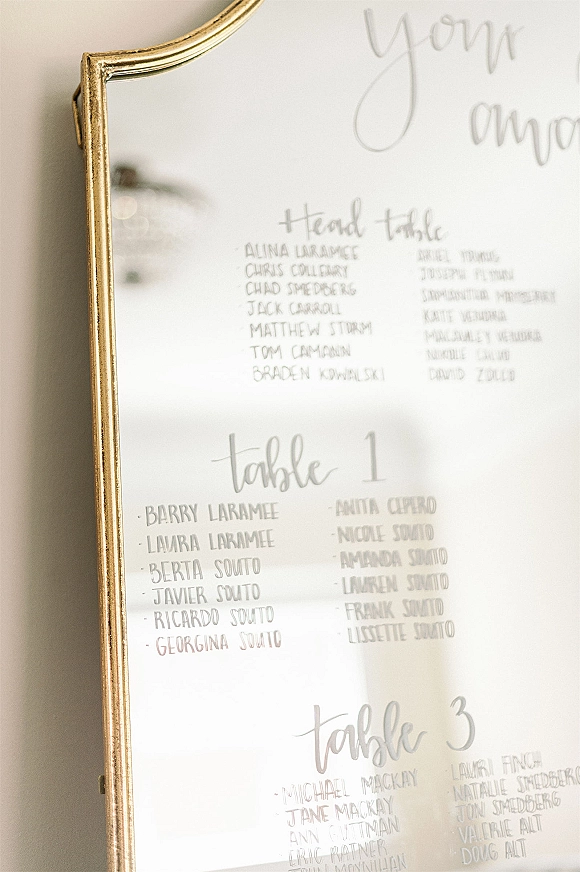 Your
Head table
ALINA LARAMEE
CHRIS COLLEARY
CHAD SMEDBERG
JACK CARROLL
MATTHEW STORM
TOM CAMANN
BRADEN KOWALSKI
ARIEL YOUNG
JOSEPH FLYNN
SAMANTHA MAYBERRY
KATE VENDRA
MACAULEY VENDRA
NICOLE CALVO
DAVID ZOCCO
table 1
· BARRY LARAMEE
· LAURA LARAMEE
· BERTA SOUTO
· JAVIER SOUTO
· RICARDO SOUTO
· GEORGINA SOUTO
· ANITA CEPERO
· NICOLE SOUTO
· AMANDA SOUTO
· LAUREN SOUTO
· FRANK SOUTO
· LISSETTE SOUTO
table 3
· MICHAEL MACKAY
· JANE MACKAY
ANN RUTTMAN
ERIC RATNER
MOYNIHAN
LAURI FINCH
NATALIE SMEDBERG
· JON SMEDBERG
· VALERIE ALT
· DOUG ALT